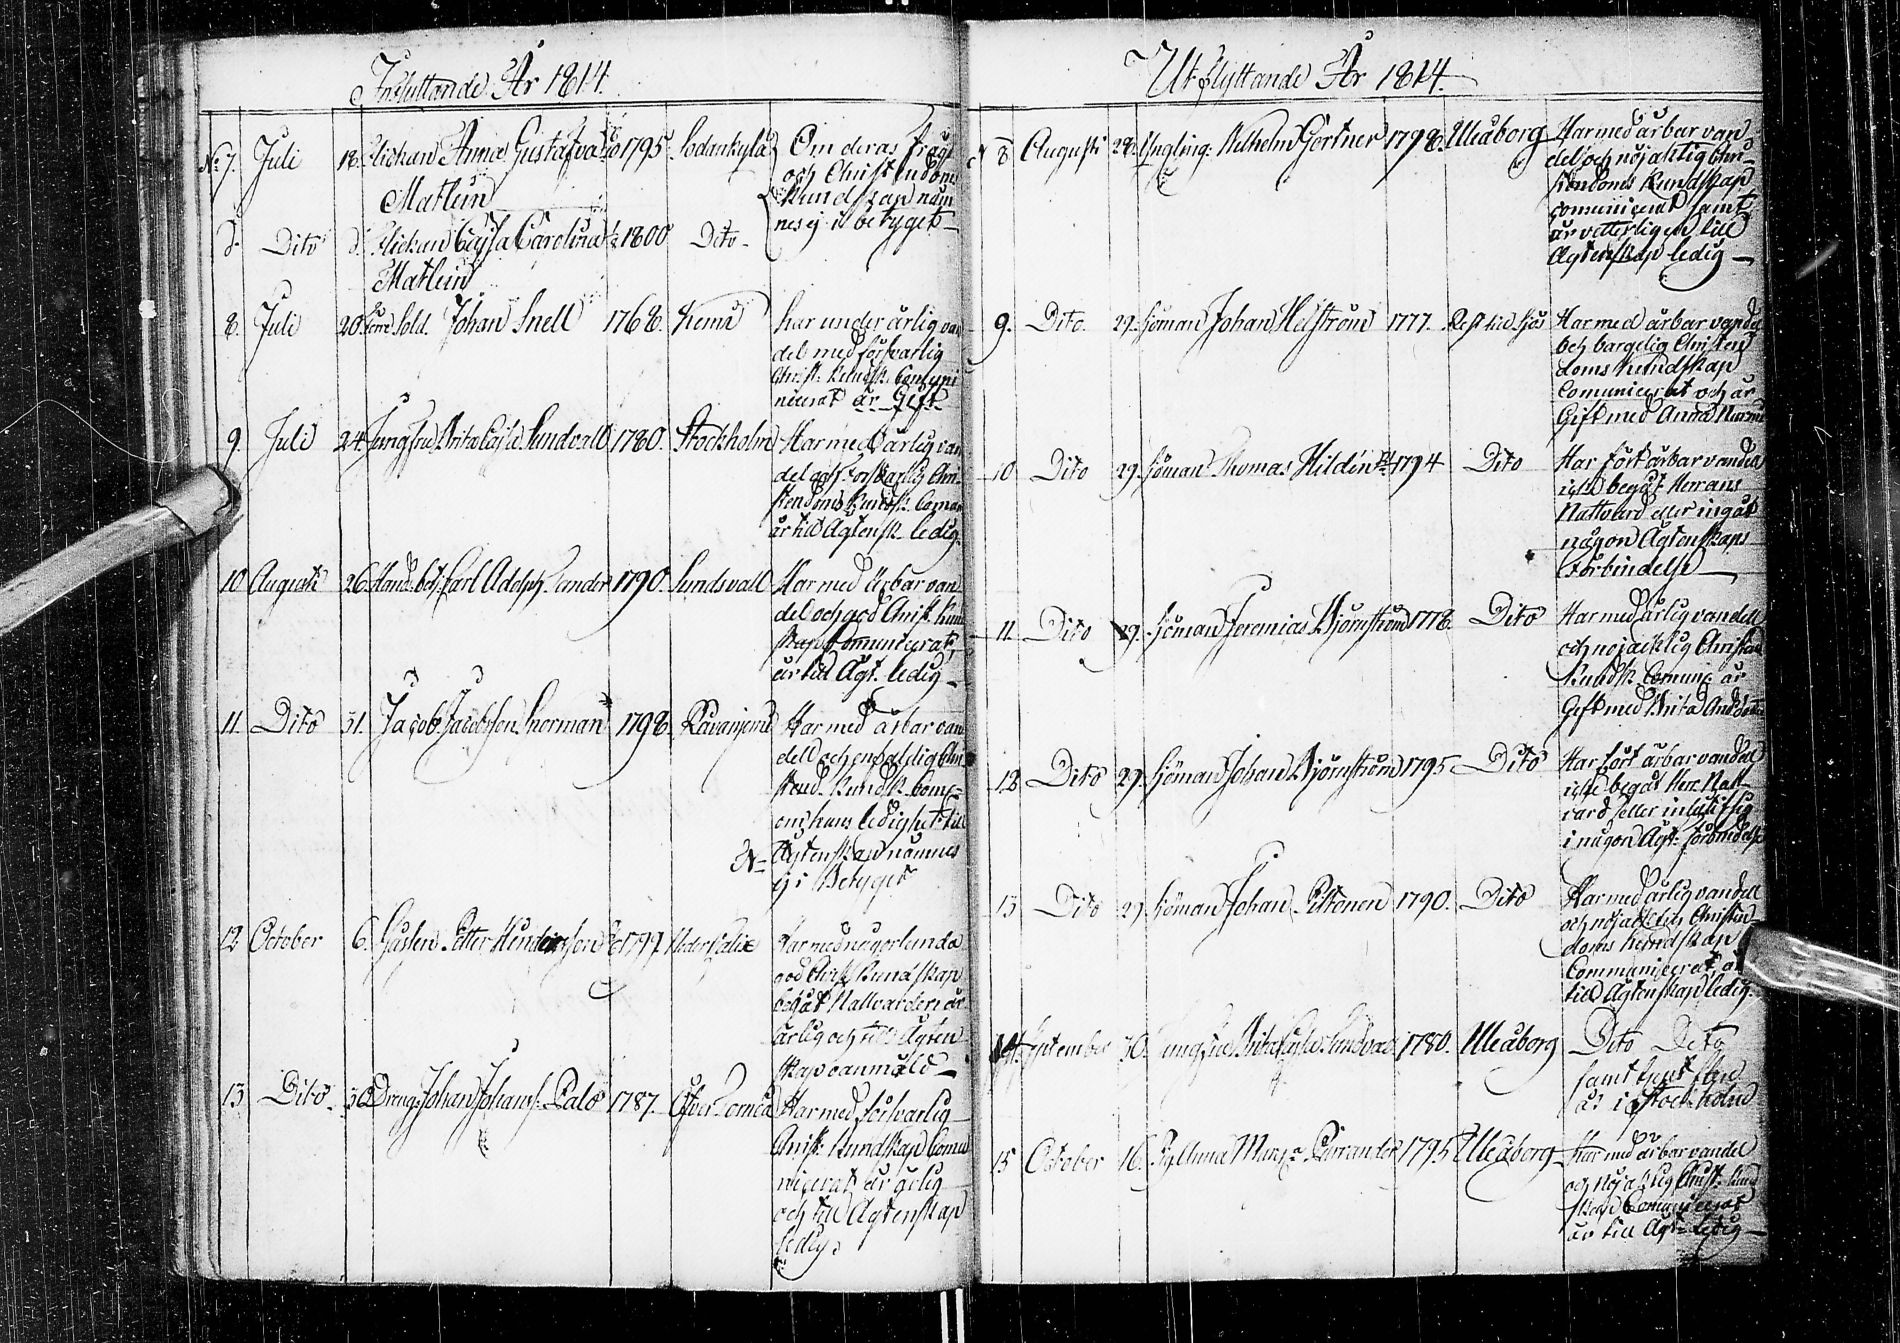 Inflyttande År 1814.
No 7. Juli 18. Flickan Anna Gustafva 1795. Sodankylä Om deras frägd
Matlein och Christendoms
Kundskap näm
nes ej i betyget
d. Dito d. Flickan Cajsa Carolina 1800 Dito
Matlein
8. Juli 20. Sold. Johan Snell 1768. Kemi har under ärlig van
del med försvarlig
Christ. Kundsk. Commu
nicerat är Gift
9. Juli 24. Jungfru Brita Cajsa Sundvall 1780. Stockholm Har med ärlig van
del och försvarlig Chri
stendoms Kundsk. Comm
är till Ägtensk. ledig.
10 Augusti 26. Hand. bet. Carl Adolph Sander 1790. Sundsvall Har med ärbar van
del och god Christ. Kund
skap Communicerat,
är till Ägt. ledig
11. Dito 31. Jacob Jacobsson Snorman 1798. Ravanjemi Har med ärbar van
dell och enfaldig Chri
stend. Kundsk. Com
om hans ledighet till
Ägtenskap nämnes
ej i Betyget
12 October 6. Gäslen Petter Hendersson 1797. Neder Calix Har med någorlunda
god Christ. Kundskap
begåt Nattvarden är
ärlig och till Ägten
skap oanmäld
13 Dito. 30 Dreng. Johan Johans. Palo 1787. Öfver Torneå Har med försvarlig
Christ. Kundskap Comu
nicerat är
och till Ägtenskap
ledig.
Utflyttande År 1814.
8 Augusti 28. Yngling. Wilhelm Gortner 1798. Uleåborg Har med ärbar van
del och nöjaktig Chri
stendoms Kundskap
comunicerat samt
är vetterligen till
Ägtenskap ledig
9. Dito. 29. Sjöman Johan Helström 1777. Rest till Sjös Har med ärbar vandel
och bargelig Christen
doms Kundskap
Comunicerat och är
Gift med Anna
10 Dito 29. Sjöman Thomas Hildén 1794 Dito Har fört ärbar vandel
icke begåt Herrans
Nattvard eller ingåt
någon Ägtenskaps
förbindelse
11. Dito 29. Sjöman Jeremias Björnström 1778. Dito Har med ärlig vandell
och nöjacktig Christend
Kundsk. Comunic. är
Gift med Brita
12 Dito 29. Sjöman Johan Björnström 1795 Dito Har fört ärbar vandel
icke begåt Herr. Natt
vard eller inlåtit sig
i någon Ägt. förbindelse
13 Dito 29. Sjöman Johan Piltonen 1790. Dito Har med ärlig vandell
och nöjacktig Christen
doms Kundskap
Communicerat, är
till Ägtenskap ledig.
14. September 30. Jungfru Brita Cajsa Sundvall 1780. Uleåborg Dito Dito
samt
år i Stockholm
15 October 16. Pig. Anna Marja Pärrander 1795 Uleåborg Har med ärbar vandel
och nöjaktig Christ. Kund
skap Comunicerat
är till Ägt. ledig